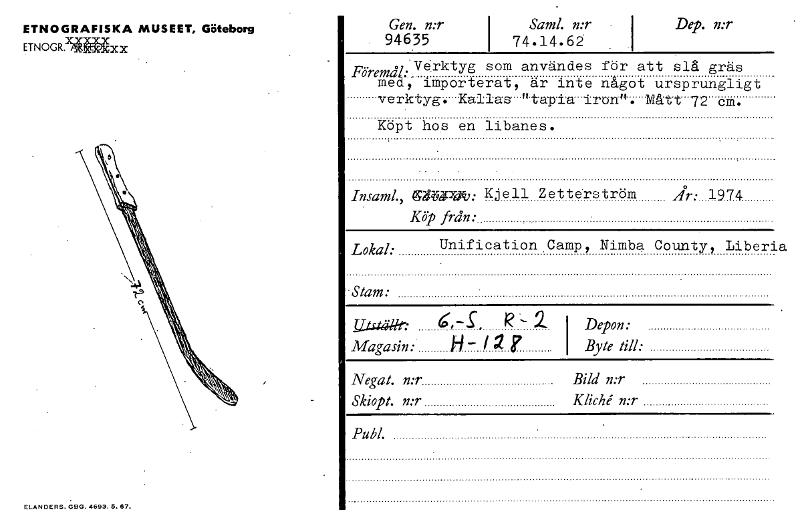 ETNOGRAFISKA MUSEET, Göteborg
ETNOGR.
72 cm
ELANDERS. GBG. 4693. 5. 67.
Gen. n:r Saml. n:r Dep. n:r
94635 74.14.62
Föremål: Verktyg som användes för att slå gräs
med, importerat, är inte något ursprungligt
verktyg. Kallas "tapia iron". Mått 72 cm.
Köpt hos en libanes.
Insaml., Kjell Zetterström År: 1974
Köp från:
Lokal: Unification Camp, Nimba County, Liberia
Stam:
Utställr: 6.-S. R-2 Depon:
Magasin: H-128 Byte till:
Negat. n:r Bild n:r
Skiopt. n:r Kliché n:r
Publ.